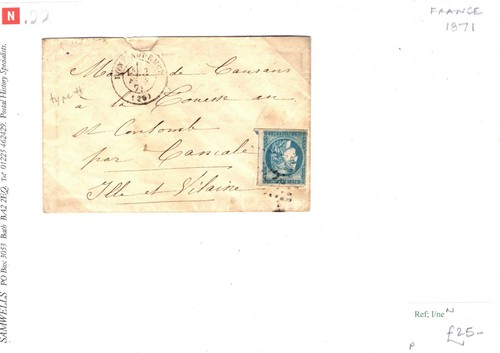 N .99
FRANCE
1871
SAMWELLS PO Box 3053 Bath BA2 2EQ. Tel 01225 462429. Postal History Specialists.
(26)
type II
M de Causans
à la Touresse au
St Coulomb
par Cancale
Ille et Vilaine
Ref; I/ne N
£25-
P